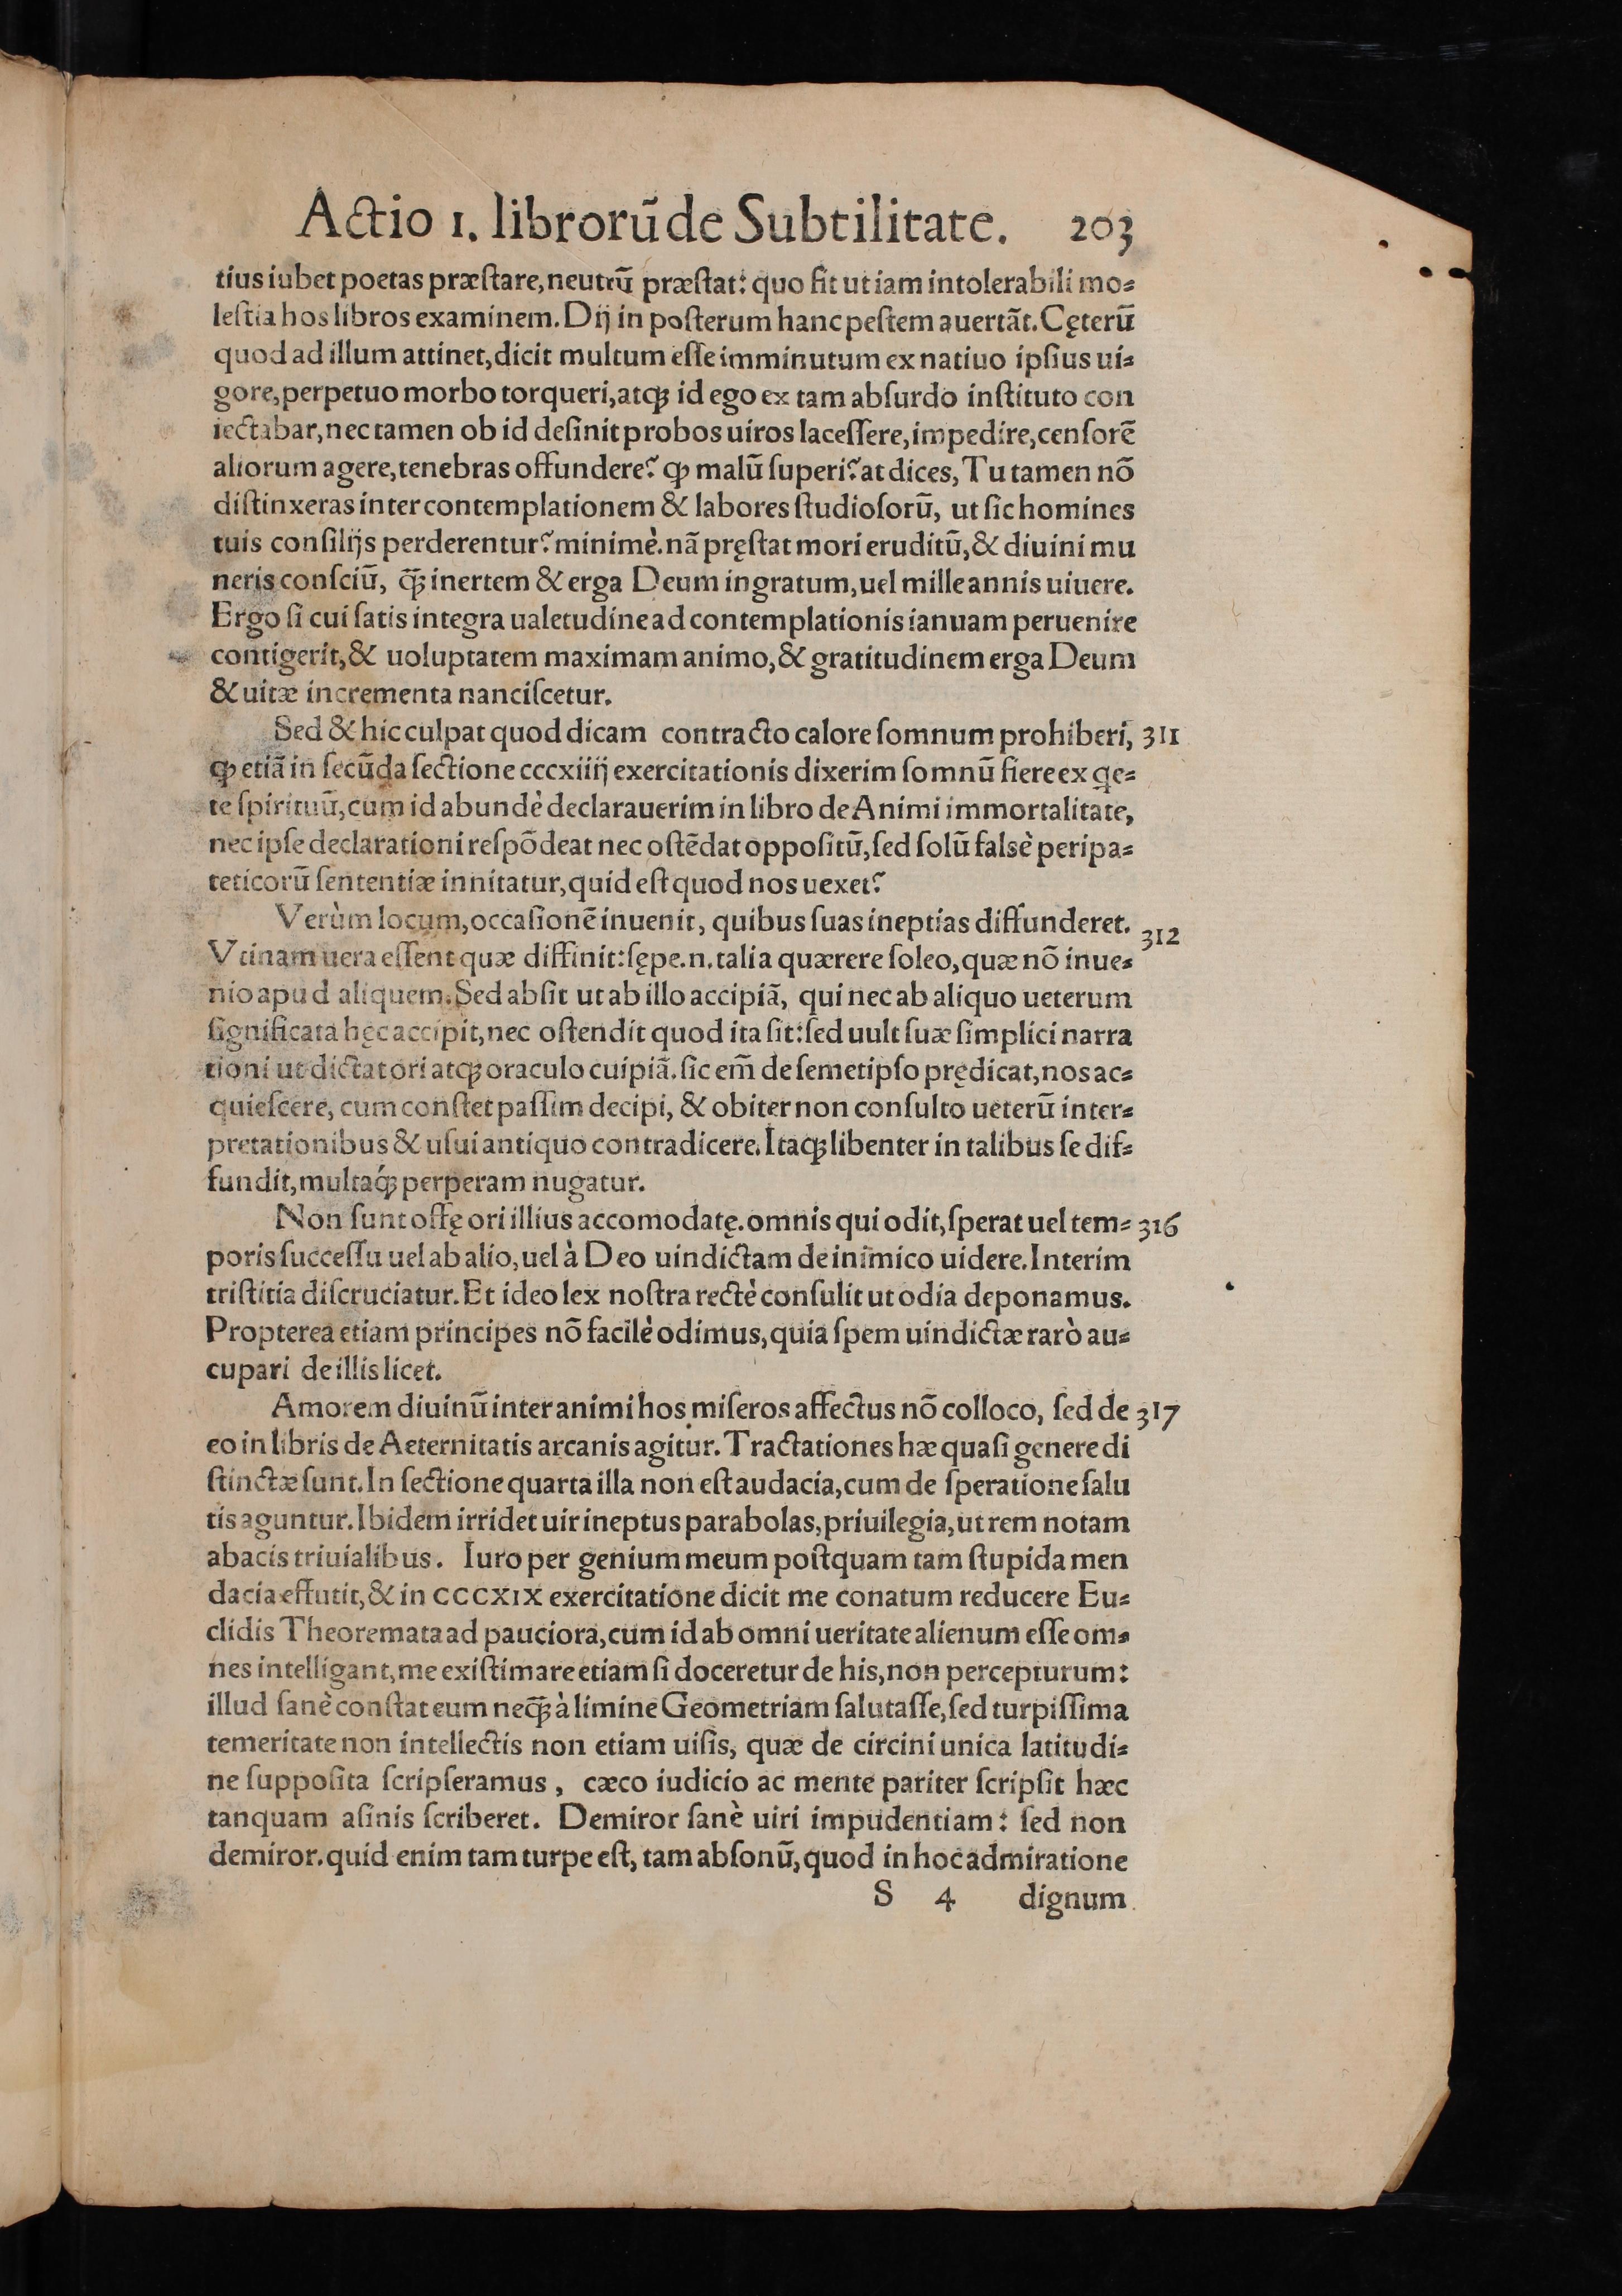 Actio 1. librorũ de Subtilitate. 203
tius iubet poetas præſtare, neutrũ præſtat: quo fit ut iam intolerabili mo⸗
leſtia hos libros examinem. Dij in poſterum hanc peſtem auertãt. Cęterũ
quod ad illum attinet, dicit multum eſſe imminutum ex natiuo ipſius ui⸗
gore, perpetuo morbo torqueri, atq́ꝫ id ego ex tam abſurdo inſtituto con
iectabar, nec tamen ob id deſinit probos uiros laceſſere, impedire, cenſorẽ
aliorum agere, tenebras offundere? ꝙ malũ ſuperi? at dices, Tu tamen nõ
diſtinxeras inter contemplationem & labores ſtudioſorũ, ut ſic homines
tuis conſilijs perderentur? minimè. nã pręſtat mori eruditũ, & diuini mu
neris conſciũ, q̃ꝫ inertem & erga Deum ingratum, uel mille annis uiuere.
Ergo ſi cui ſatis integra ualetudine ad contemplationis ianuam peruenire
contigerit, & uoluptatem maximam animo, & gratitudinem erga Deum
& uitæ incrementa nanciſcetur.
Sed & hic culpat quod dicam contracto calore ſomnum prohiberi, 311
ꝙ etiã in ſecũda ſectione cccxiiij exercitationis dixerim ſomnũ fiere ex ꝗe⸗
te ſpirituũ, cum id abundè declarauerim in libro de Animi immortalitate,
nec ipſe declarationi reſpõdeat nec oſtẽdat oppoſitũ, ſed ſolũ falsè peripa⸗
teticorũ ſententiæ innitatur, quid eſt quod nos uexet?
Verùm locum, occaſionẽ inuenit, quibus ſuas ineptias diffunderet. 312
Vtinam uera eſſent quæ diffinit: ſępe .n. talia quærere ſoleo, quæ nõ inue⸗
nio apud aliquem. Sed abſit ut ab illo accipiã, qui nec ab aliquo ueterum
ſignificata hęc accipit, nec oſtendit quod ita ſit: ſed uult ſuæ ſimplici narra
tioni ut dictatori atqꝫ oraculo cuipiã. ſic em̃ de ſemetipſo prędicat, nos ac⸗
quieſcere, cum conſtet paſſim decipi, & obiter non conſulto ueterũ inter⸗
pretationibus & uſui antiquo contradicere. Itaqꝫ libenter in talibus ſe dif⸗
fundit, multaq́ꝫ perperam nugatur.
Non ſunt offę ori illius accomodatę. omnis qui odit, ſperat uel tem⸗ 316
poris ſucceſſu uel ab alio, uel à Deo uindictam de inimico uidere. Interim
triſtitia diſcruciatur. Et ideo lex noſtra rectè conſulit ut odia deponamus.
Propterea etiam principes nõ facilè odimus, quia ſpem uindictæ rarò au⸗
cupari de illis licet.
Amorem diuinũ inter animi hos miſeros affectus nõ colloco, ſed de 317
eo in libris de Aeternitatis arcanis agitur. Tractationes hæ quaſi genere di
ſtinctæ ſunt. In ſectione quarta illa non eſt audacia, cum de ſperatione ſalu
tis aguntur. Ibidem irridet uir ineptus parabolas, priuilegia, ut rem notam
abacis triuialibus. Iuro per genium meum poſtquam tam ſtupida men
dacia effutit, & in CCCXIX exercitatione dicit me conatum reducere Eu⸗
clidis Theoremata ad pauciora, cum id ab omni ueritate alienum eſſe om⸗
nes intelligant, me exiſtimare etiam ſi doceretur de his, non percepturum:
illud ſanè conſtat eum neq̃ꝫ à limine Geometriam ſalutaſſe, ſed turpiſſima
temeritate non intellectis non etiam uiſis, quæ de circini unica latitudi⸗
ne ſuppoſita ſcripſeramus, cæco iudicio ac mente pariter ſcripſit hæc
tanquam aſinis ſcriberet. Demiror ſanè uiri impudentiam: ſed non
demiror. quid enim tam turpe eſt, tam abſonũ, quod in hoc admiratione
S 4 dignum